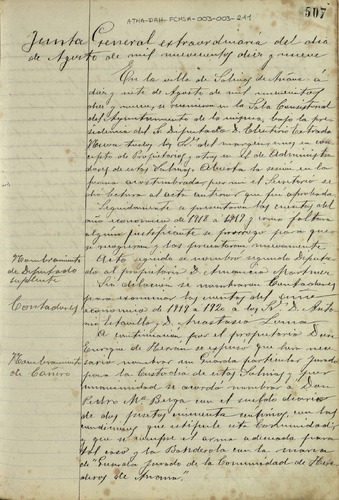 ATHA-DAH-FCMSA-003-003-241
507
Junta General extraordinaria del dia
de Agosto de mil novecientos diez y nueve
En la villa de Salinas de Añana á
diez y siete de Agosto de mil novecientos
diez y nueve, se reunieron en la Sala Consistorial
del Ayuntamiento de la misma, bajo la pre-
sidencia del Sr. Diputado D.
los Sres. del margen unos en con-
cepto de Propietarios y otros en el de Administra-
dores de estas Salinas. Abierta la sesión en la
forma acostumbrada, por mi el Secretario se
dió lectura al acta anterior que fué aprobada
Seguidamente se presentaron las cuentas del
año económico de 1918 á 1919 y como faltara
algun justificante se prorrogó para que
se recogieran y las presentaran nuevamente
Nombramiento
de Diputado
suplente
Acto seguido se nombró segundo Diputa-
do al propietario D. Amancio Martinez
Contadores
Sin dilacion se nombraron Contadores
para examinar las cuentas del
economico de 1919 á 1920 á los Sres. D. Anto-
nio y D. Anastasio
Nombramiento
de Cañero
A continuacion por el propietario Don
Enrique de se expuso que era nece-
sario nombrar un Guarda particular Jurado
para la Custodia de estas Salinas y por
unanimidad se acordó nombrar á Don
Pedro Mª Berga con el sueldo diario
de dos pesetas cincuenta centimos, con las
condiciones que estipule esta Comunidad,
y que se compre el arma adecuada para
tal caso y la Bandolera con la marca
de "Guarda Jurado de la Comunidad de Here-
deros de Añana".